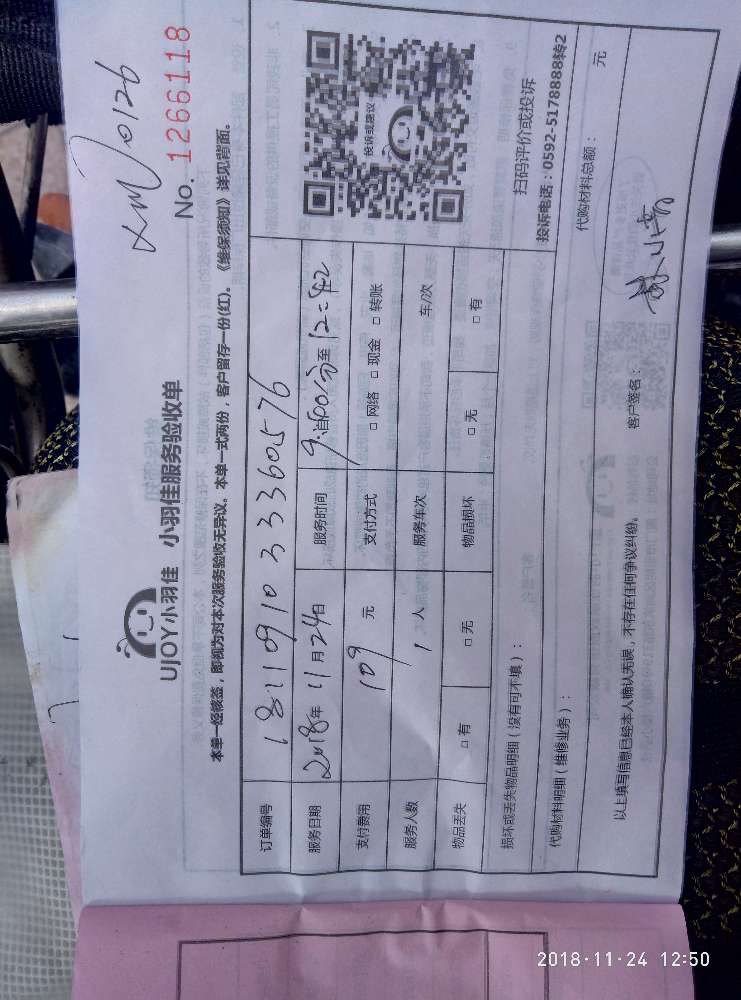 XMJ0126
No. 1266118
UJOY小羽佳 小羽佳服务验收单
本单一经核签，即视为对本次服务验收无异议。本单一式两份，客户留存一份(红)。《维保须知》详见背面。
订单编号 18110910333360576
服务日期 2018年11月24日 服务时间 9:00分至12:42
支付费用 109 元 支付方式 □ 网络 □ 现金 □ 转账
服务人数 1 人 服务车次 车/次
物品丢失 □ 有 □ 无 物品损坏 □ 无 □ 有
投诉或建议
扫码评价或投诉
投诉电话：0592-5178888转2
损坏或丢失物品明细（没有可不填）：
代购材料明细（维修业务）： 代购材料总额： 元
以上填写信息已经本人确认无误，不存在任何争议纠纷。 客户签名：
2018·11·24 12:50